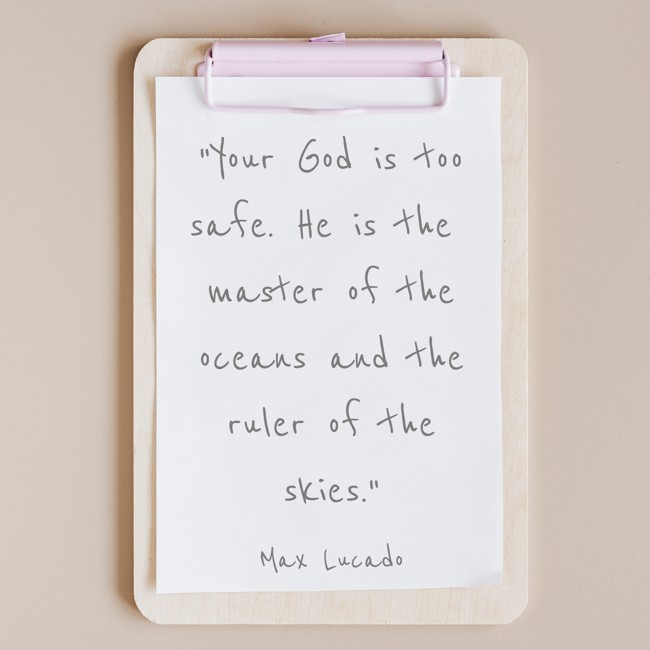 "Your God is too
safe. He is the
master of the
oceans and the
ruler of the
skies."
Max Lucado